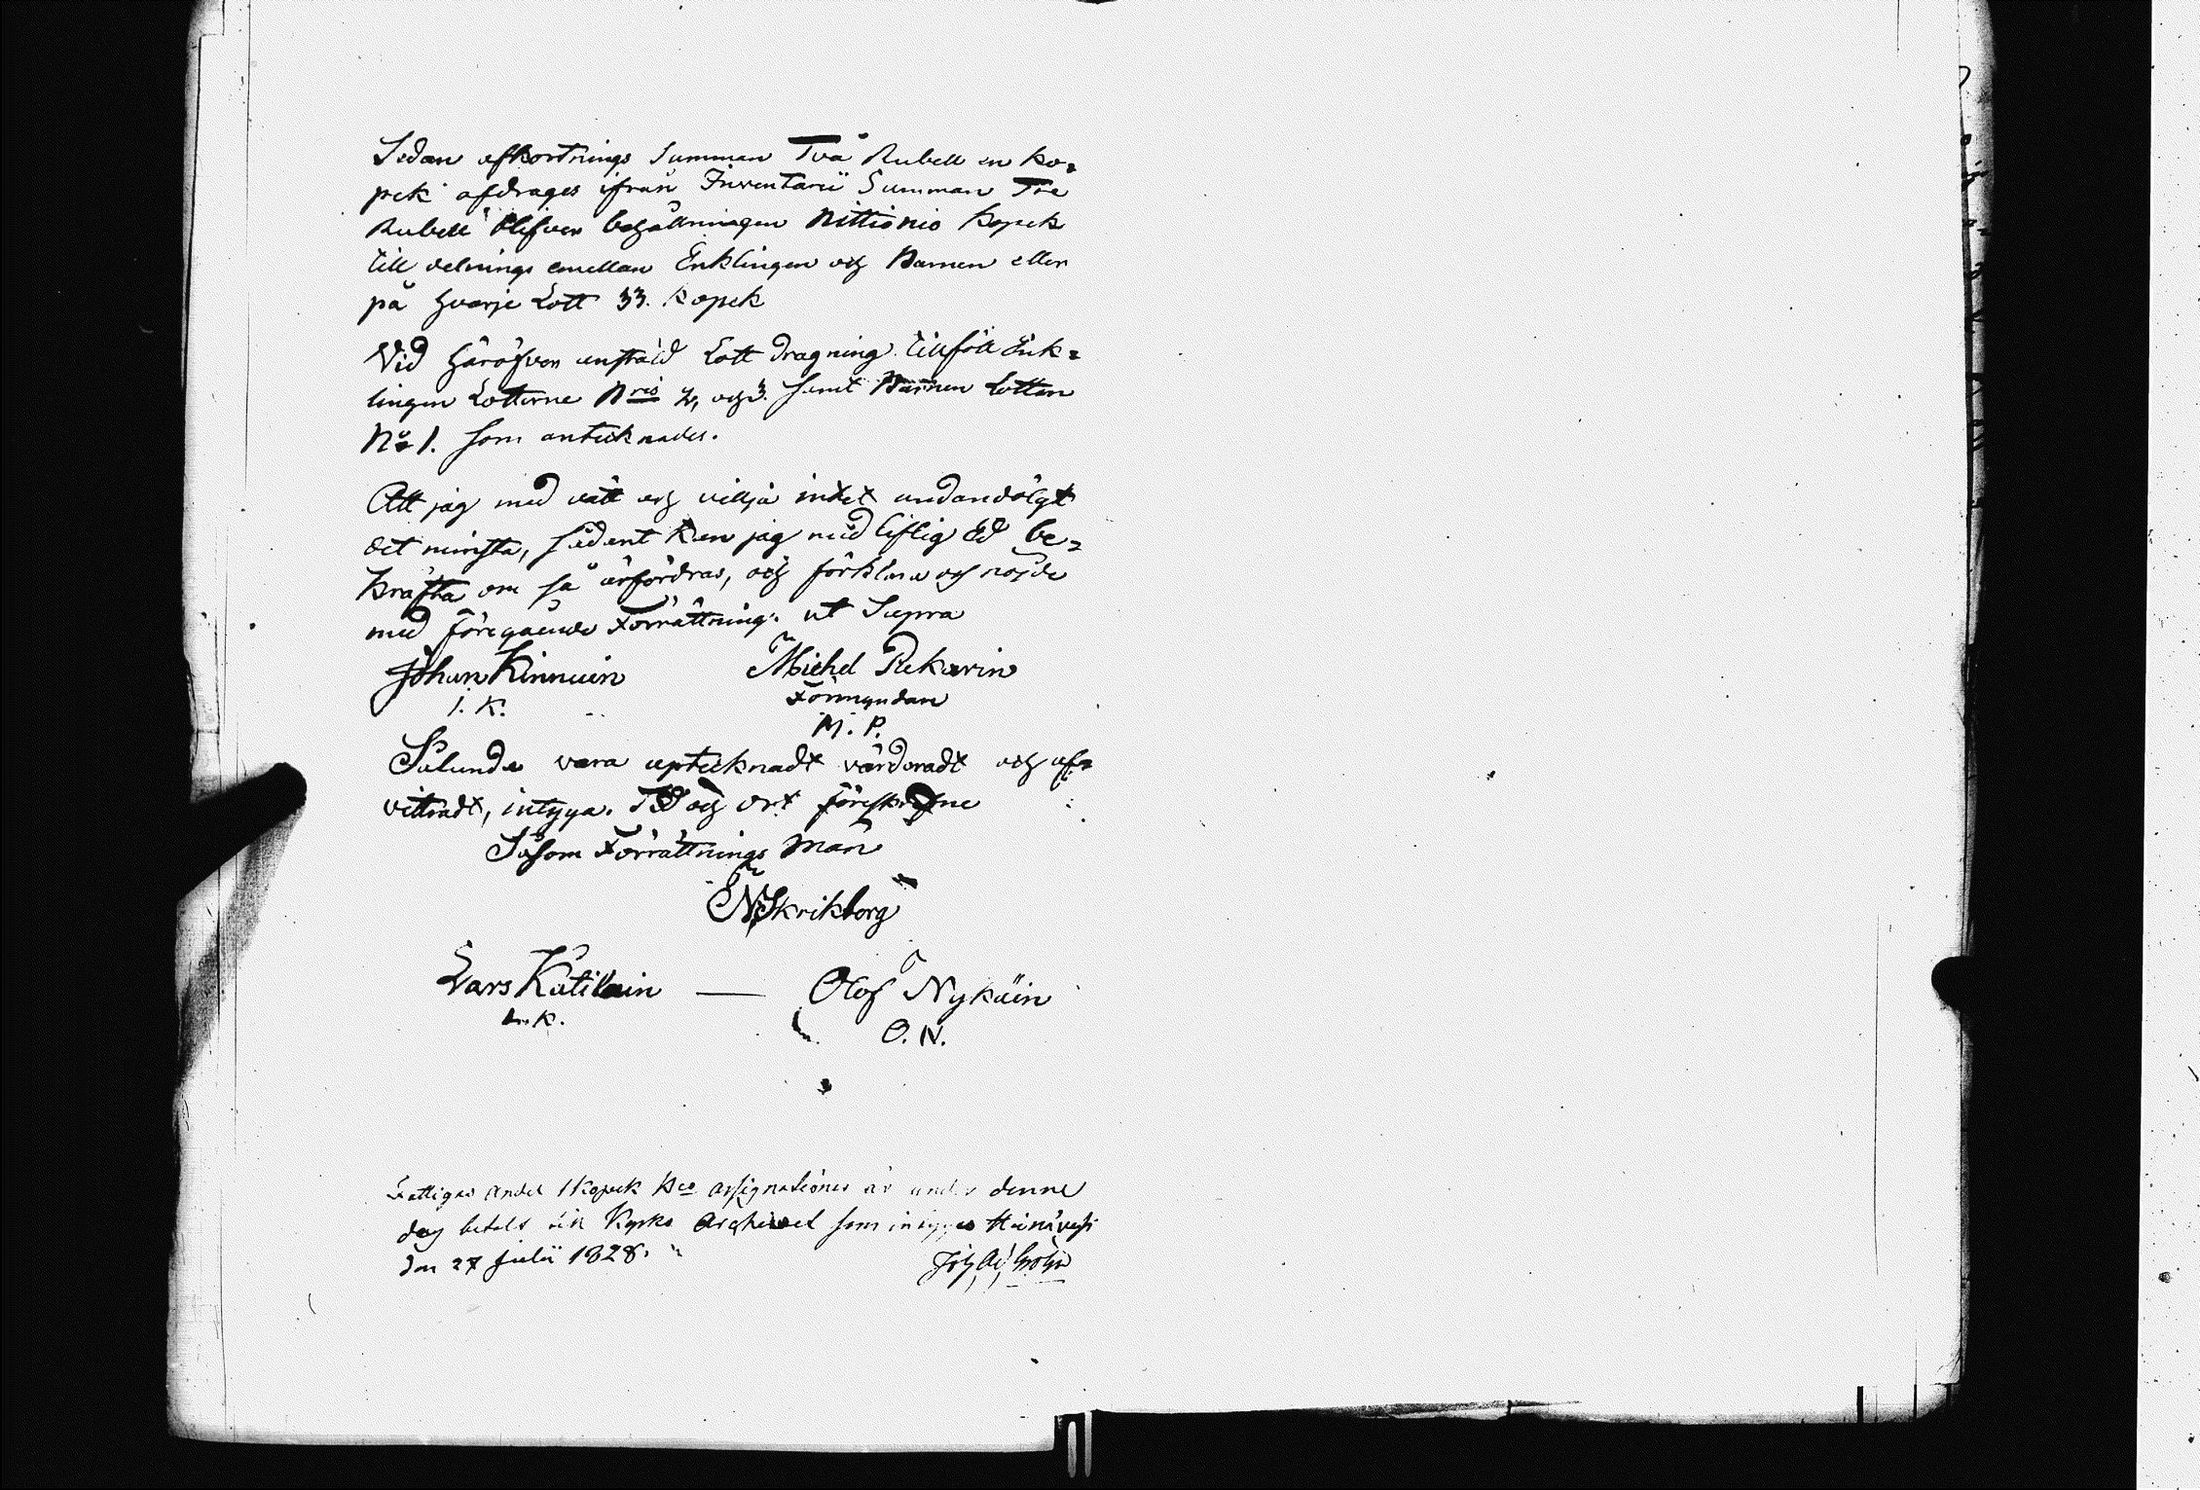 Sedan afkortnings Summan Två Rubell en ko=
pek afdrages ifrån Inventarii Summan Tre
Rubell blifver behållningen Nittionio kopek
till delnings emellan Enklingen och Barnen eller
på hvarje Lott 33. kopek
Vid häröfver anstäld Lott dragning tillföll Enk=
lingen Lotterne Nris 2, och 3. samt Barnen Lotten
No 1. som antecknades.
Att jag med vätt och villja intet undandölgt
det minsta, sådant kan jag med liflig Ed be=
kräfta om så ärfördras, och förklara och nöjde
med föregående Förrättning. ut Supra
Johan Kinnuin Michel Pekarin
I. K. Förmyndare
M. P.
Sålunda vara uptecknadt värderadt och af=
vittradt, intyga. Tid och Ort föreskrefne
Såsom Förrättnings Män
N Skrikborg
Lars Katilain — Olof Nykäin
L. K.
O. N.
Fattigas andel 1 Kopek Bco assignationer är under denne
dag betalt till Kyrko Archivet som intygas Heinävesi
den 27 Julii 1828.